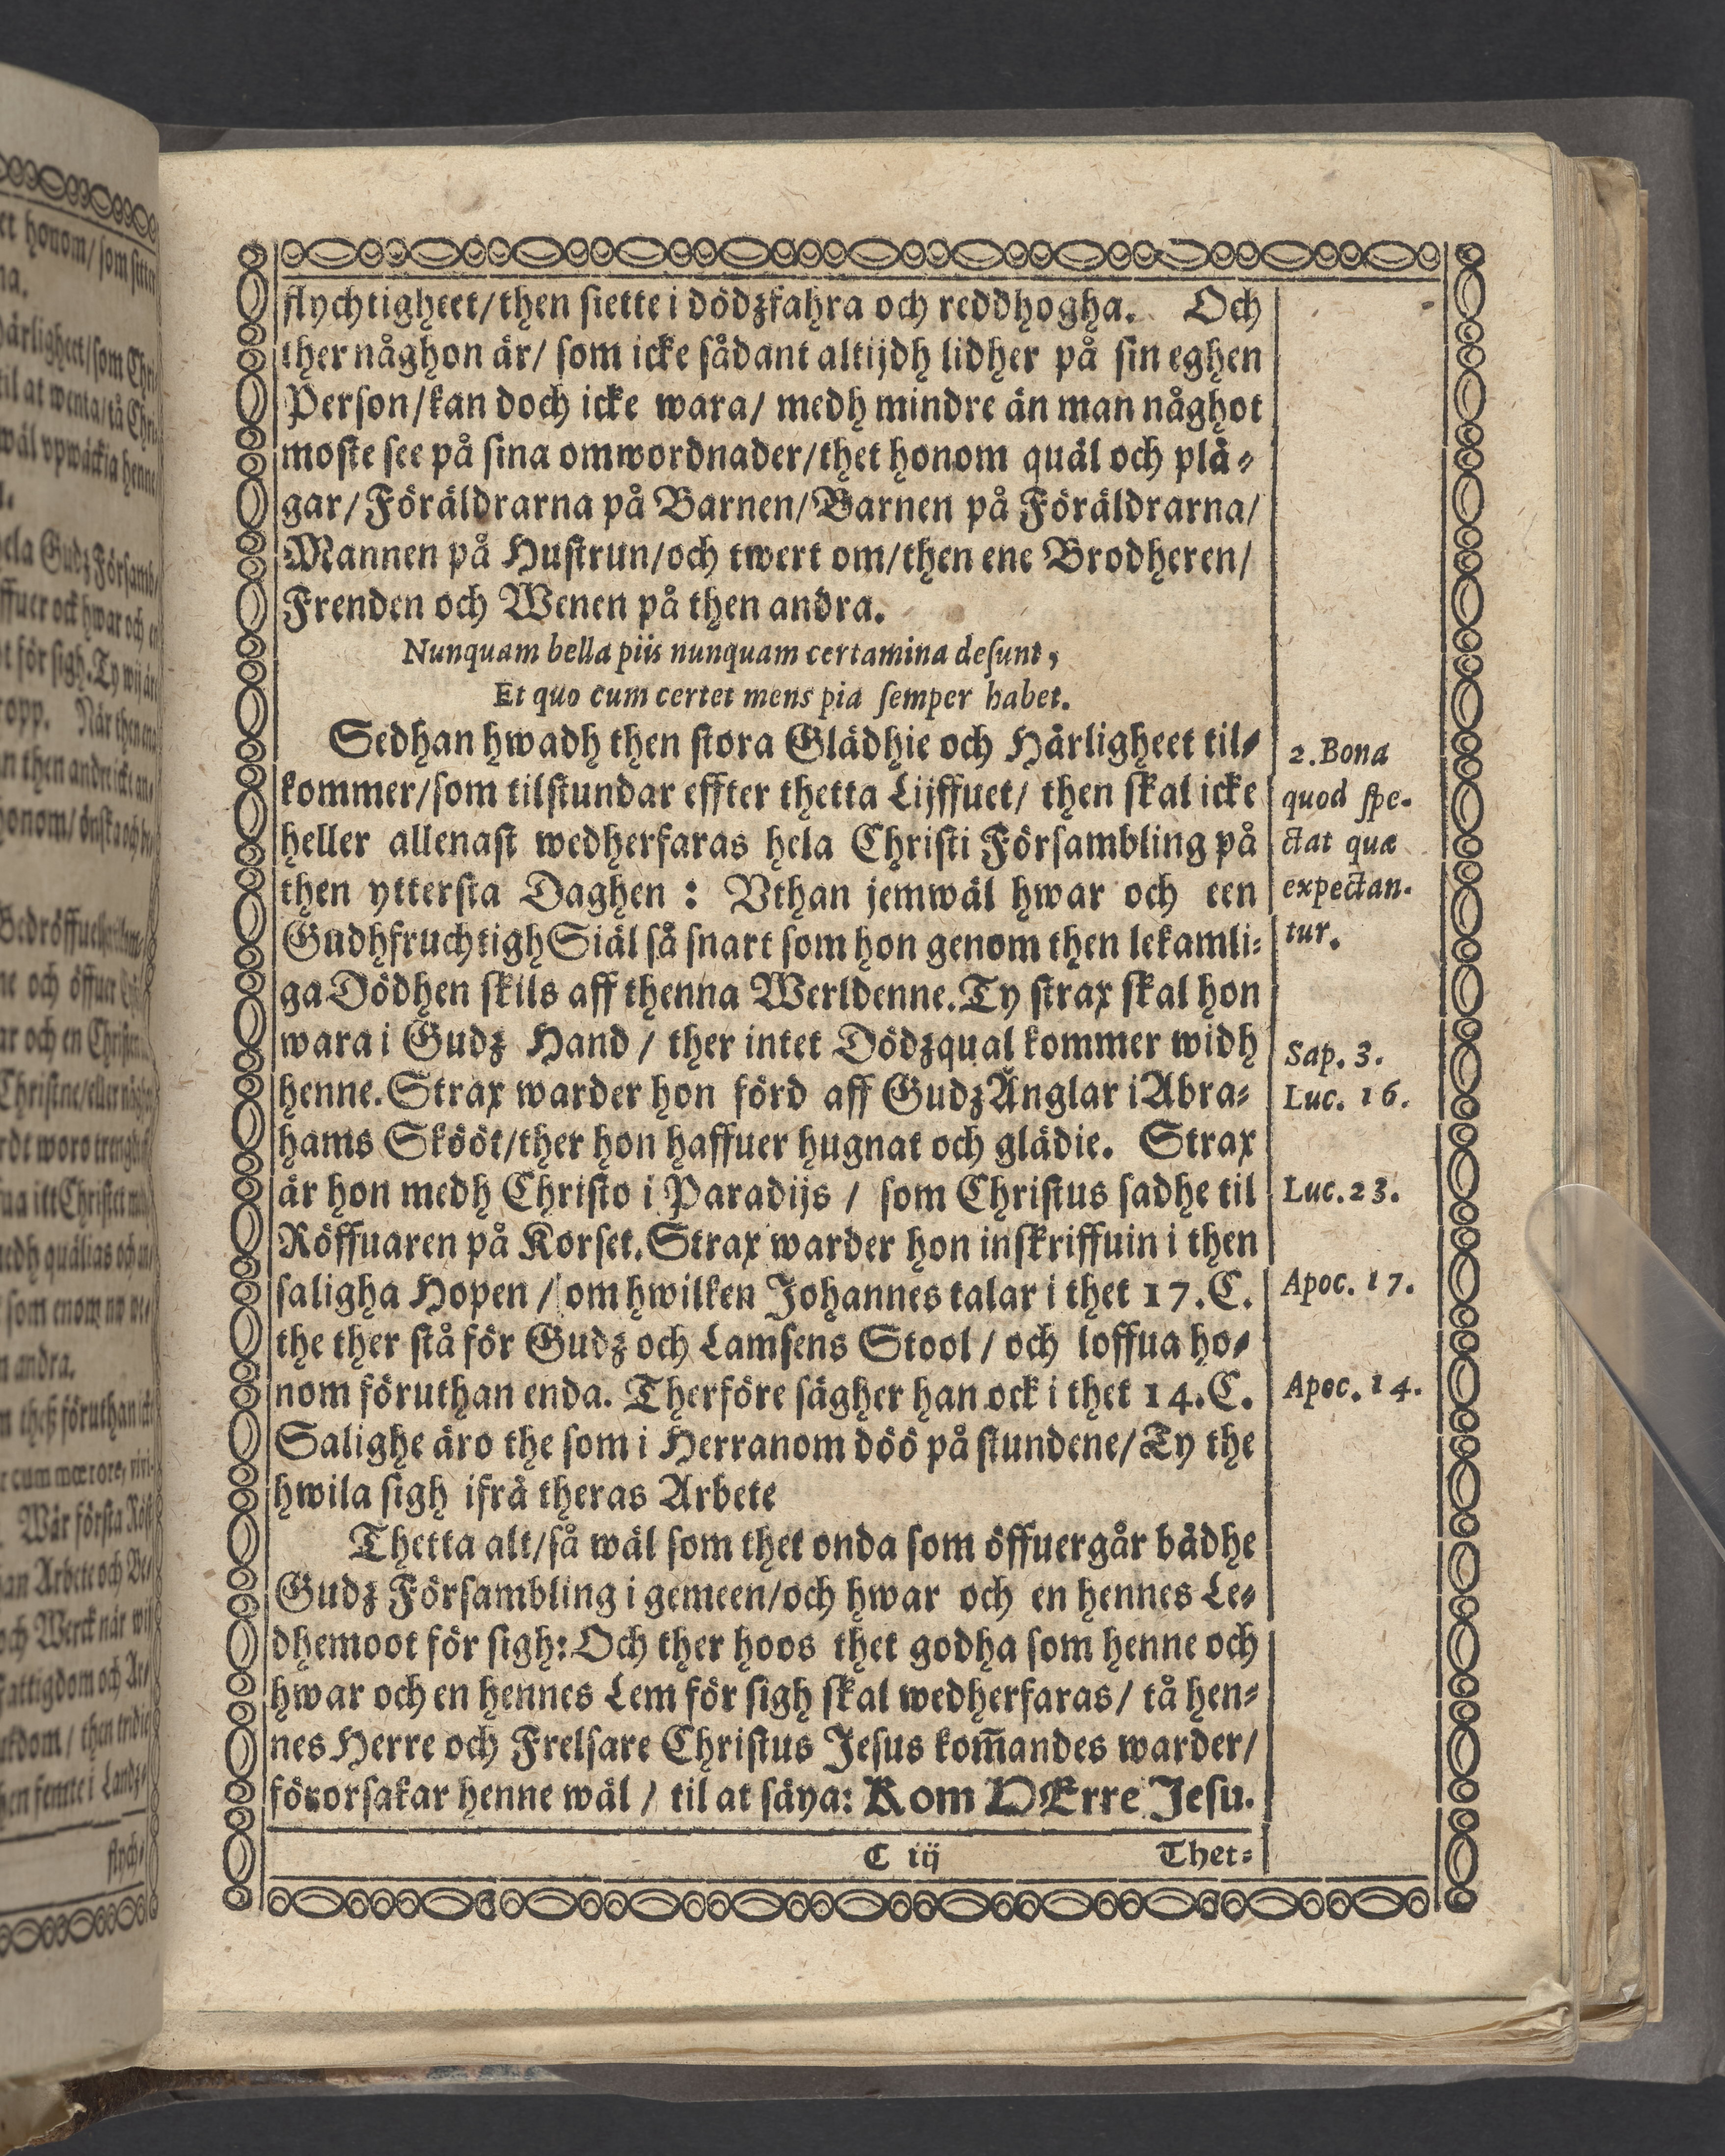 flychtigheet/then siette i dödzfahra och reddhogha. Och
ther någhon är/ som icke sådant altijdh lidher på sin eghen
Person/kan doch icke wara/ medh mindre än man någhot
moste see på sina omwordnader/thet honom quäl och plå-
gar/Föräldrarna på Barnen/Barnen på Föräldrarna/
Mannen på Hustrun/och twert om/then ene Brodheren/
Frenden och Wenen på then andra.
Nunquam bella piis nunquam certamina desunt,
Et quo cum certet mens pia semper habet.
Sedhan hwadh then stora Glädhie och Härligheet til-
kommer/som tilstundar effter thetta Lijffuet/ then skal icke
heller allenast wedherfaras hela Christi Försambling på
then yttersta Daghen : Vthan jemwäl hwar och een
Gudhfruchtigh Siäl så snart som hon genom then lekamli-
ga Dödhen skils aff thenna Werldenne. Ty strax skal hon
wara i Gudz Hand / ther intet Dödzqual kommer widh
henne. Strax warder hon förd aff Gudz Änglar i Abra-
hams Skööt/ther hon haffuer hugnat och glädie. Strax
är hon medh Christo i Paradijs / som Christus sadhe til
Röffuaren på Korset. Strax warder hon inskriffuin i then
saligha Hopen / om hwilken Johannes talar i thet 17. C.
the ther stå för Gudz och Lamsens Stool / och loffua ho-
nom föruthan enda. Therföre sägher han ock i thet 14. C.
Salighe äro the som i Herranom döö på stundene/ Ty the
hwila sigh ifrå theras Arbete
Thetta alt/så wäl som thet onda som öffuergår bådhe
Gudz Försambling i gemeen/och hwar och en hennes Le-
dhemoot för sigh: Och ther hoos thet godha som henne och
hwar och en hennes Lem för sigh skal wedherfaras/ tå hen-
nes Herre och Frelsare Christus Jesus kom̃andes warder/
förorsakar henne wäl / til at säya: Kom HErre Jesu.
C iij Thet-
2. Bona
quod spe-
ctat quæ
expectan-
tur.
Sap. 3.
Luc. 16.
Luc. 23.
Apoc. 17.
Apoc. 14.